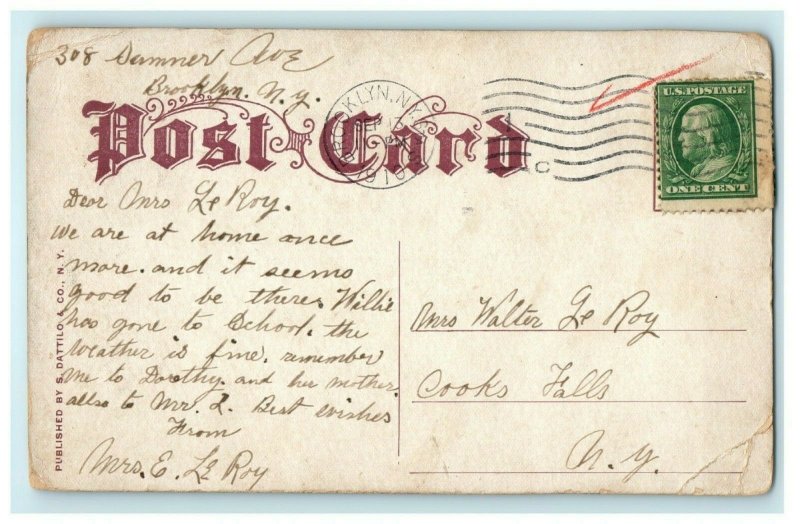 308 Sumner Ave
Brooklyn. N.y.
Post Card
BROOKLYN, N.Y.
SEP 13
PM
1910
C
U.S. POSTAGE
ONE CENT
Dear Mrs Le Roy.
we are at home once
more. and it seems
good to be there. Willie
has gone to School. the
Weather is fine. remember
me to Dorothy. and her mother.
allso to Mr. L. Best wishes
From
Mrs. E. Le Roy
PUBLISHED BY S. DATTILO & CO., N. Y.
Mrs Walter Le Roy
Cooks Falls
N. y.